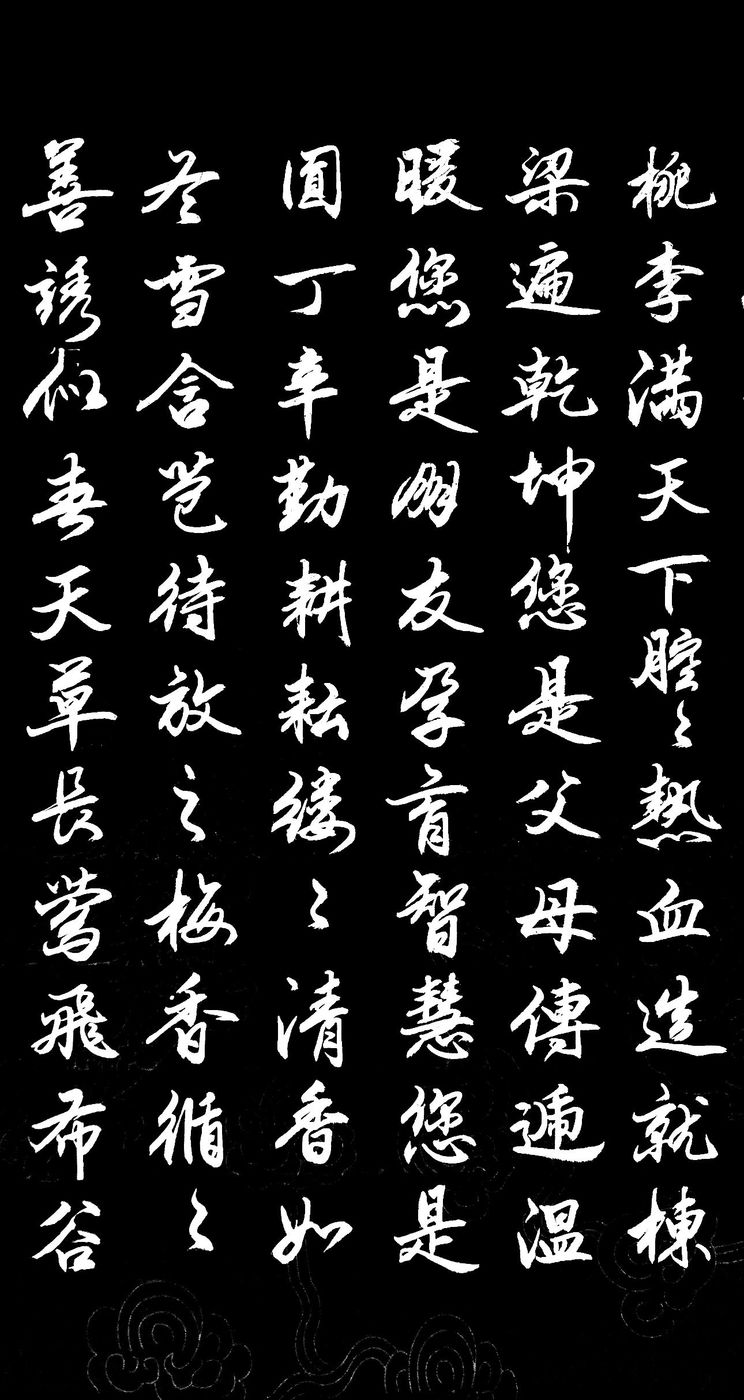 桃李满天下腔〻熱血造就棟
梁遍乾坤您是父母傳遞温
暖您是朋友孕育智慧您是
園丁辛勤耕耘缕〻清香如
冬雪含苞待放之梅香循〻
善誘似春天草長鶯飛布谷